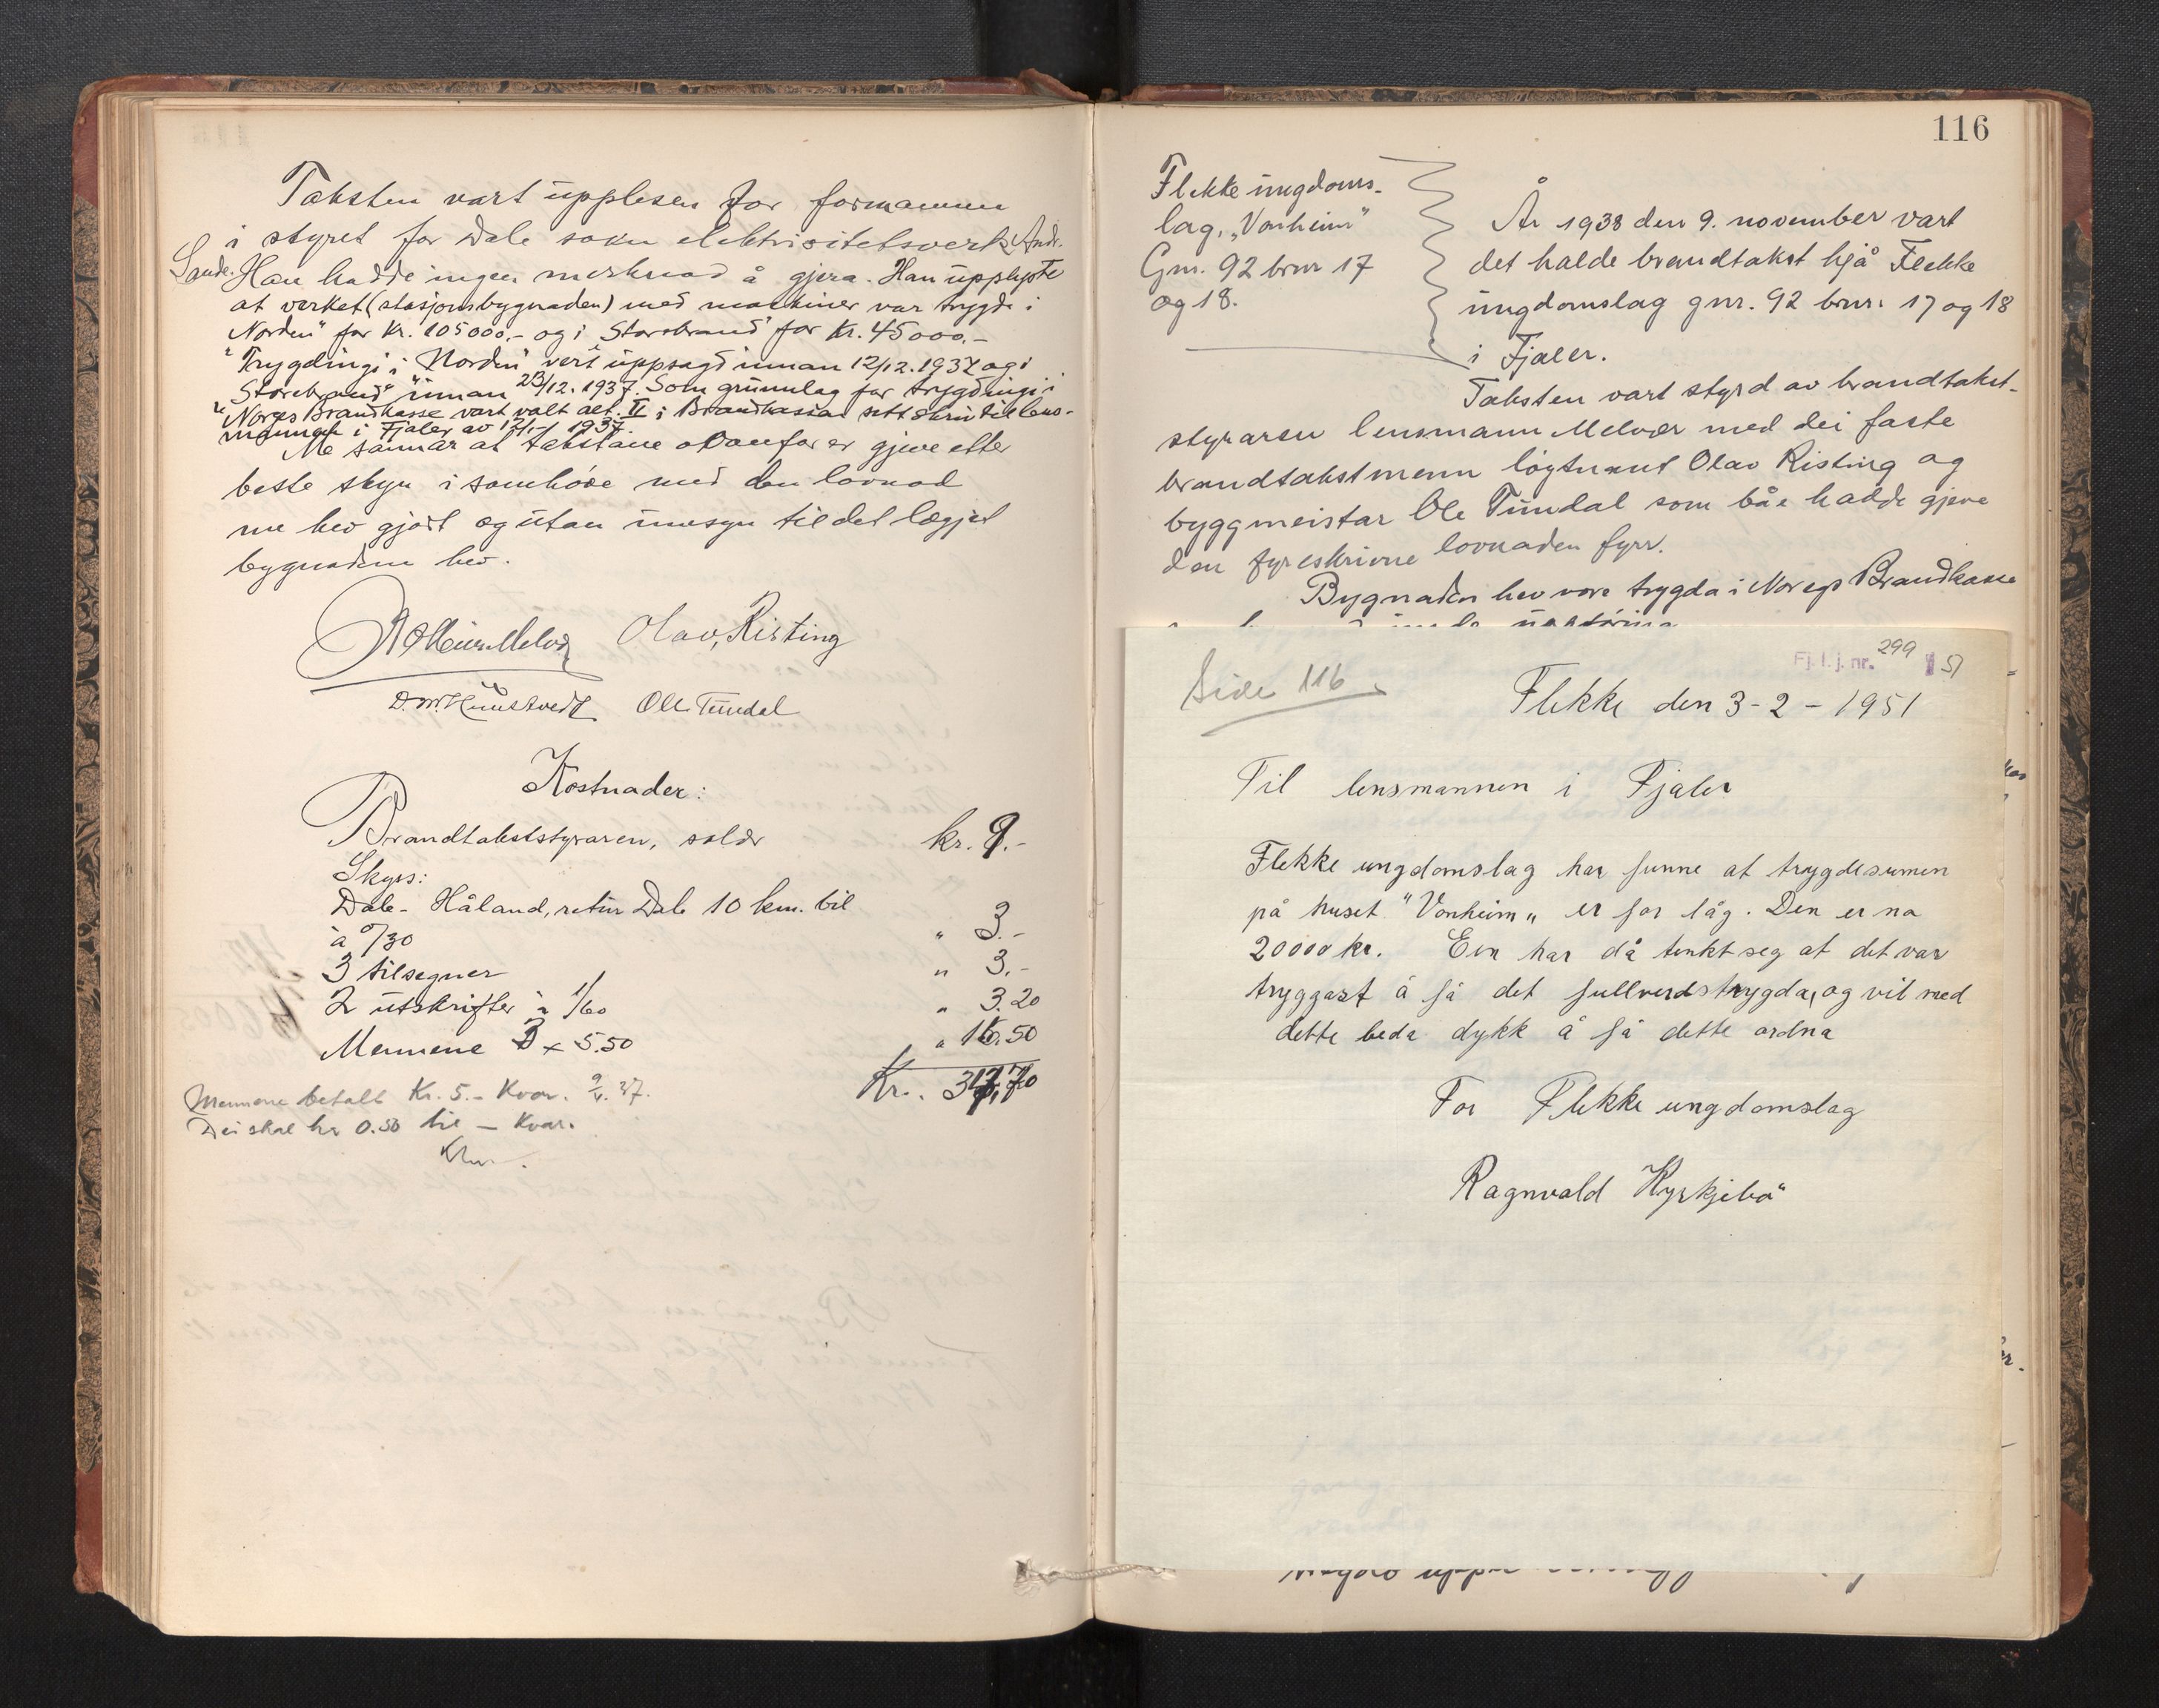 Taksten vart upplesen for formannen
i styret for Dale sokn elektrisitetsverk, Andr.
Sande. Han hadde ingen merknad å gjera. Han upplyste
at verket (stasjonsbygnaden) med maskiner var trygd i
"Norden" for kr. 105000,- og i "Storebrand" for kr. 45000,-
Trygdingi i "Norden" vert uppsagd innan 12/12.1937 og i
"Storebrand" innan 23/12.1937. Som grunnlag for trygdingi i
Norges Brandkasse vart valt alt. II i Brandkassas sitt skriv til lens-
mannen i Fjaler av 1937.
Me sannar at takstane ovanfor er gjeve etter
beste skyn i samhøve med den lovnad
me hev gjort og utan umsyn til det lægjet
bygnadene hev.
Olav Risting
Ole Tundal
Kostnader:
Brandtakststyraren, salær kr. 9.-
Skyss:
Dale - Håland, retur Dale 10 km. bil
à 0/30 " 3.-
3 tilsegner " 3.-
2 utskrifter à 1/60 " 3.20
Mennene 3 x 5.50 " 16.50
Kr.
Mennene betalt Kr. 5.- Kvar. 37.
Dei skal ha 0.50 til - Kvar.
116
Flekke ungdoms-
lag, „Vonheim"
Gnr. 92 brnr 17
og 18.
År 1938 den 9. november vart
det halde brandtakst hjå Flekke
ungdomslag gnr. 92 brnr. 17 og 18
i Fjaler.
Taksten vart styrd av brandtakst-
styraren lensmann Melvær med dei faste
brandtakstmenn løytnant Olav Risting og
byggmeistar Ole Tundal som båe hadde gjeve
den fyreskrivne lovnaden fyrr.
Bygnaden hev vore trygda i Noregs Brandkasse
Side 116
Fj. l. j. nr. 299 51
Flekke den 3-2-1951
Til lensmannen i Fjaler
Flekke ungdomslag har funne at trygdesumen
på huset "Vonheim" er for låg. Den er no
20000 kr. Ein har då tenkt seg at det var
tryggast å få det fullverdstrygda, og vil med
dette beda dykk å få dette ordna
For Flekke ungdomslag
Ragnvald Kyrkjebø